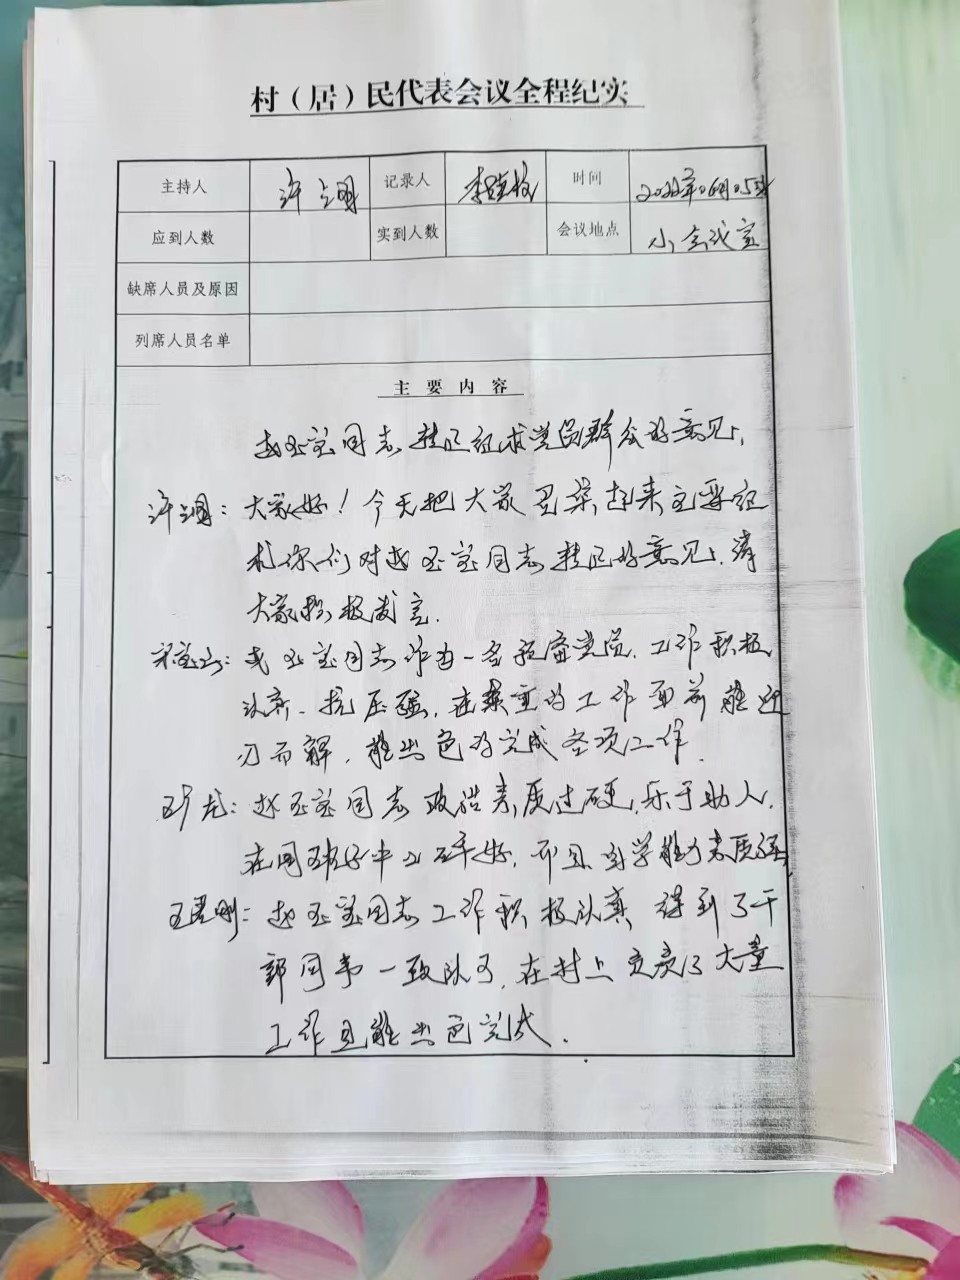 村（居）民代表会议全程纪实
主持人 许 记录人 李 时间 2022年06月05日
应到人数 实到人数 会议地点 小会议室
缺席人员及原因
列席人员名单
主要内容
赵玉宝同志转正征求党员群众的意见
许：大家好！今天把大家召集起来主要征
求你们对赵玉宝同志转正的意见，请
大家积极发言.
赵玉宝同志作为一名预备党员，工作积极
认真、抗压强，在繁重的工作面前能迎
刃而解，能出色的完成各项工作.
赵玉宝同志政治素质过硬，乐于助人，
在同事好中口碑好，而且自学能力素质强
王：赵玉宝同志工作积极认真 得到了干
部同事一致认可，在村上负责了大量
工作且能出色完成.